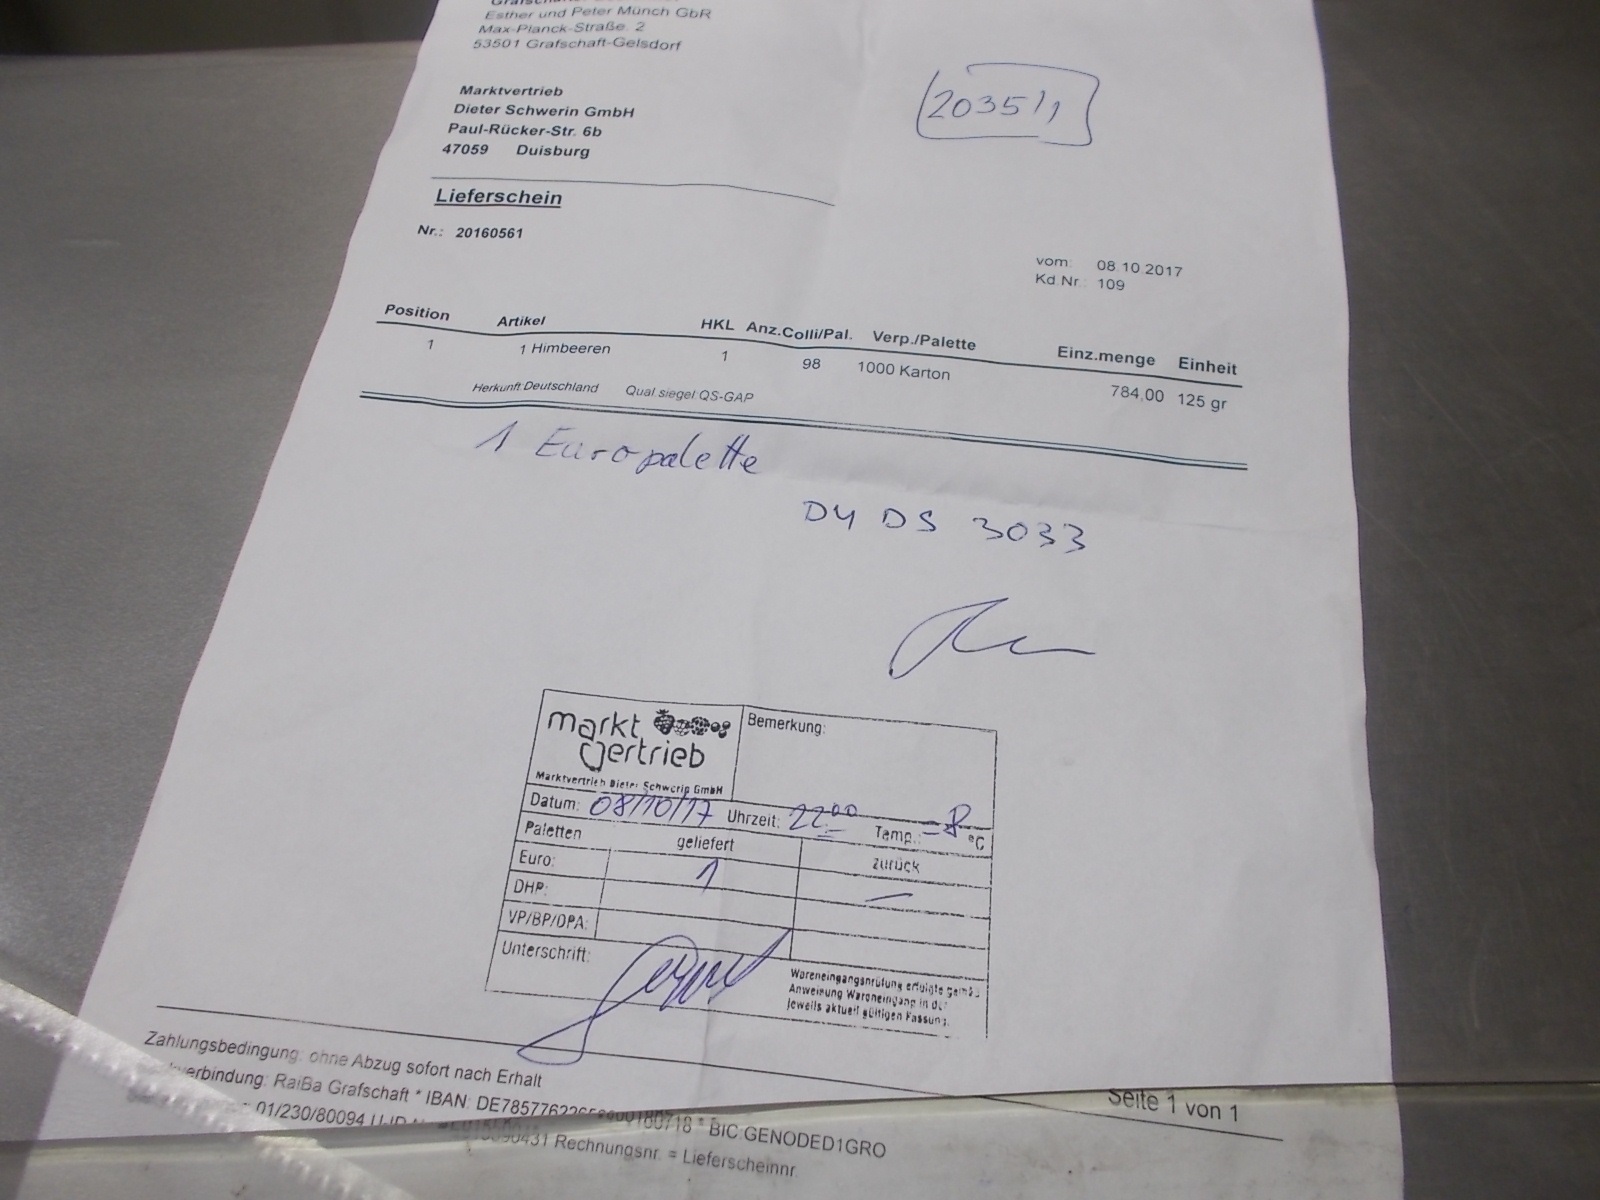 Esther und Peter Münch GbR
Max-Planck-Straße 2
53501 Grafschaft-Gelsdorf
2035/1
Marktvertrieb
Dieter Schwerin GmbH
Paul-Rücker-Str. 6b
47059 Duisburg
Lieferschein
Nr.: 20160561
vom: 08.10.2017
Kd.Nr.: 109
Position Artikel HKL Anz.Colli/Pal. Verp./Palette Einz.menge Einheit
1 1 Himbeeren 1 98 1000 Karton 784,00 125 gr
Herkunft Deutschland Qual.siegel:QS-GAP
1 Europalette
DU DS 3033
markt vertrieb
Marktvertrieb Dieter Schwerin GmbH
Bemerkung:
Datum: 08/10/17 Uhrzeit: 22 00 Temp.: °C
Paletten geliefert zurück
Euro: 1 —
DHP:
VP/BP/DPA:
Unterschrift:
Wareneingangsprüfung erfolgte gemäß
Anweisung Wareneingang in der
jeweils aktuell gültigen Fassung.
Zahlungsbedingung: ohne Abzug sofort nach Erhalt
RaiBa Grafschaft * IBAN: * BIC:GENODED1GRO
01/230/80094 Rechnungsnr. = Lieferscheinnr.
Seite 1 von 1